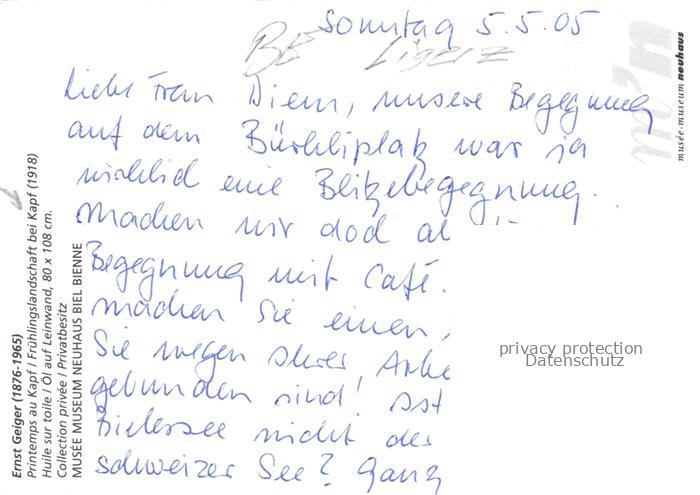 Sonntag 5.5.05
BE Ligerz
Liebe Frau Diem, unsere Begegnung
auf dem Bürkliplatz war ja
wirklich eine Blitzbegegnung.
Machen wir doch al
Begegnung mit Café.
machen Sie einen,
Sie wegen Ihrer Arbe
gebunden sind! Ist
Bielersee nicht der
schweizer See? Ganz
privacy protection
Datenschutz
Ernst Geiger (1876-1965)
Printemps au Kapf / Frühlingslandschaft bei Kapf (1918)
Huile sur toile / Öl auf Leinwand, 80 x 108 cm.
Collection privée / Privatbesitz
MUSÉE MUSEUM NEUHAUS BIEL BIENNE
m'n
musée-museum neuhaus